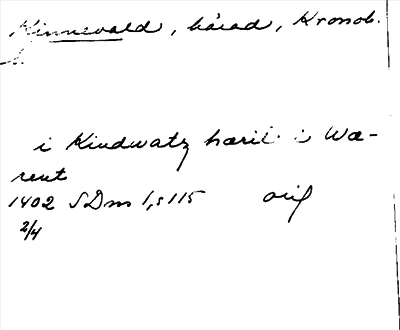 Kinnevald, härad, Kronob.
l.
i Kindwatz hærit i Wæ-
rent
1402 SDns 1, s 115 orig
2/4